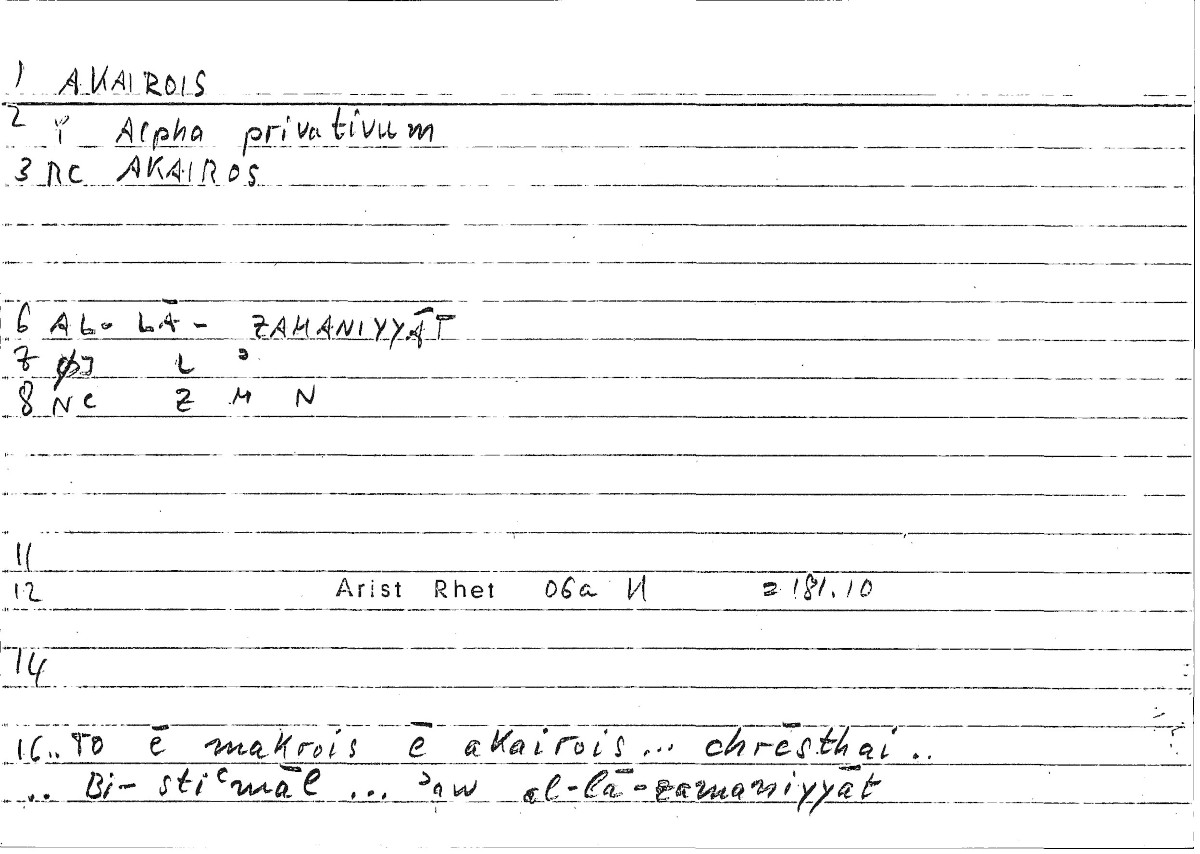 1 AKAIROIS
2 i Alpha privativum
3 RC AKAIROS
6 AL- LĀ- ZAMANIYYĀT
7 L ʾ
8 NC Z M N
11
12 Arist Rhet 06a 11 =181.10
14
16.. TO ē makrois ē akairois ... chrēsthai ..
.. Bi- stiʿmāl ... ʾaw al-lā-zamaniyyāt